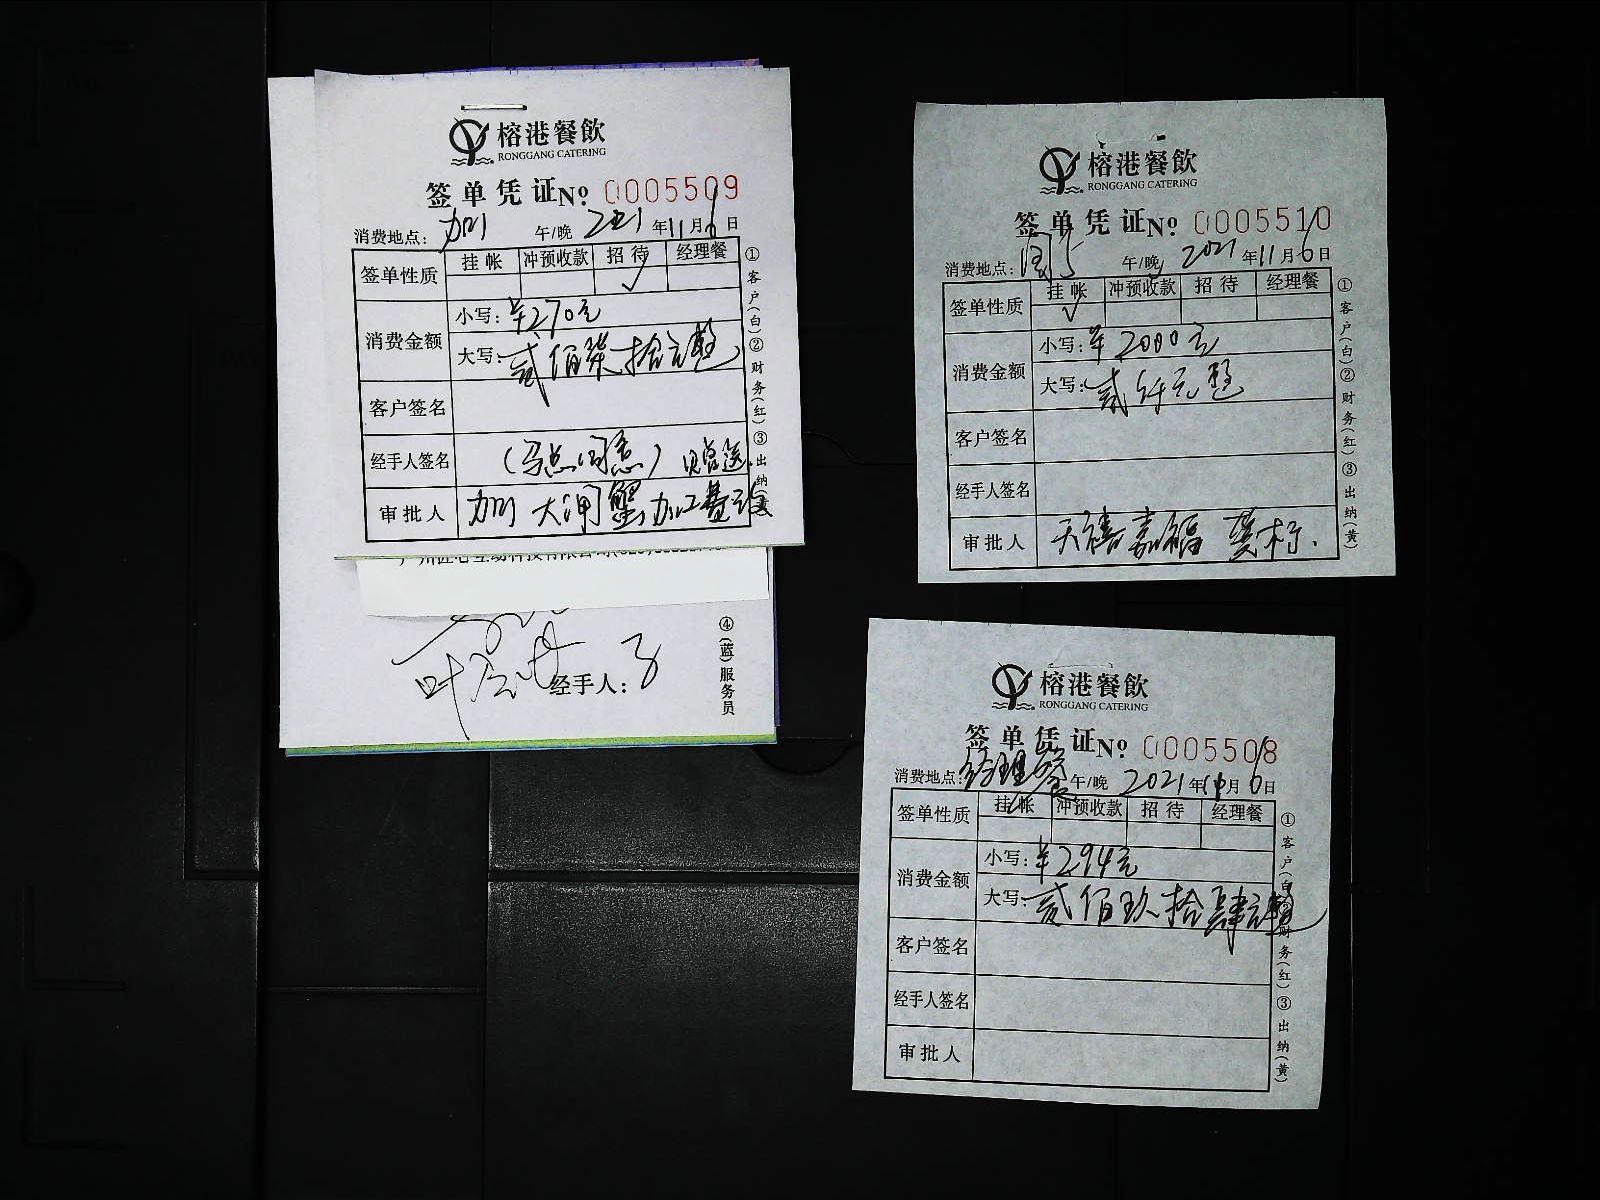 榕港餐飲
RONGGANG CATERING
签单凭证 No 0005509
消费地点: 午/晚 2021年11月6日
签单性质 挂帐 冲预收款 招待 经理餐
✓
消费金额 小写: ¥270元
大写: 贰佰柒拾元整
客户签名
经手人签名 (马总同意) 赠送
审批人 大闸蟹加工费
①客户(白)②财务(红)③出纳(黄)
经手人:
④(蓝)服务员
榕港餐飲
RONGGANG CATERING
签单凭证 No 0005510
消费地点: 午/晚 2021年11月6日
签单性质 挂帐 冲预收款 招待 经理餐
✓
消费金额 小写: ¥2000元
大写: 贰仟元整
客户签名
经手人签名
审批人 天禧嘉福
①客户(白)②财务(红)③出纳(黄)
榕港餐飲
RONGGANG CATERING
签单凭证 No 0005508
消费地点: 经理餐 午/晚 2021年11月6日
签单性质 挂帐 冲预收款 招待 经理餐
消费金额 小写: ¥294元
大写: 贰佰玖拾肆元整
客户签名
经手人签名
审批人
①客户(白)②财务(红)③出纳(黄)